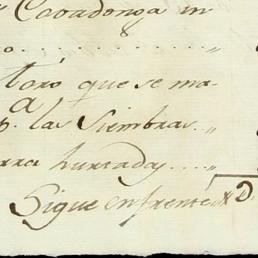 Covadonga in
8
o . . . . . . . . . . . . . . . . . . „
toro que se ma-
a
p. las Siembras . . „
rra hurtada . . . . „
Sigue enfrente